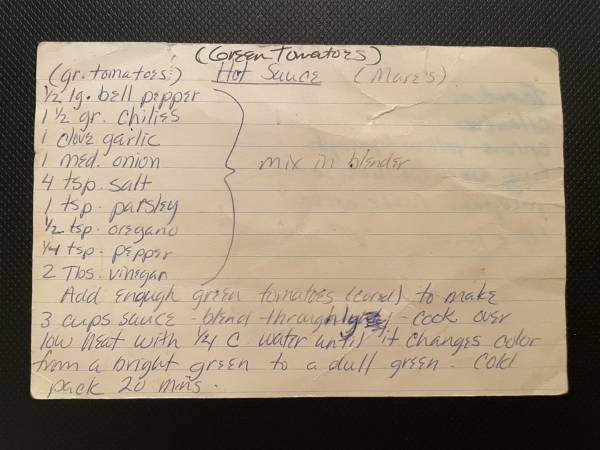 (Green Tomatoes)
(gr. tomatoes) Hot Sauce (Mare's)
1/2 lg. bell pepper
1 1/2 gr. chilies
1 clove garlic
1 med. onion
mix in blender
4 tsp. salt
1 tsp. parsley
1/2 tsp. oregano
1/4 tsp. pepper
2 Tbs. vinegar
Add enough green tomatoes (cored) to make
3 cups sauce - blend throughly - cook over
low heat with 1/4 C water until it changes color
from a bright green to a dull green. Cold
pack 20 mins.